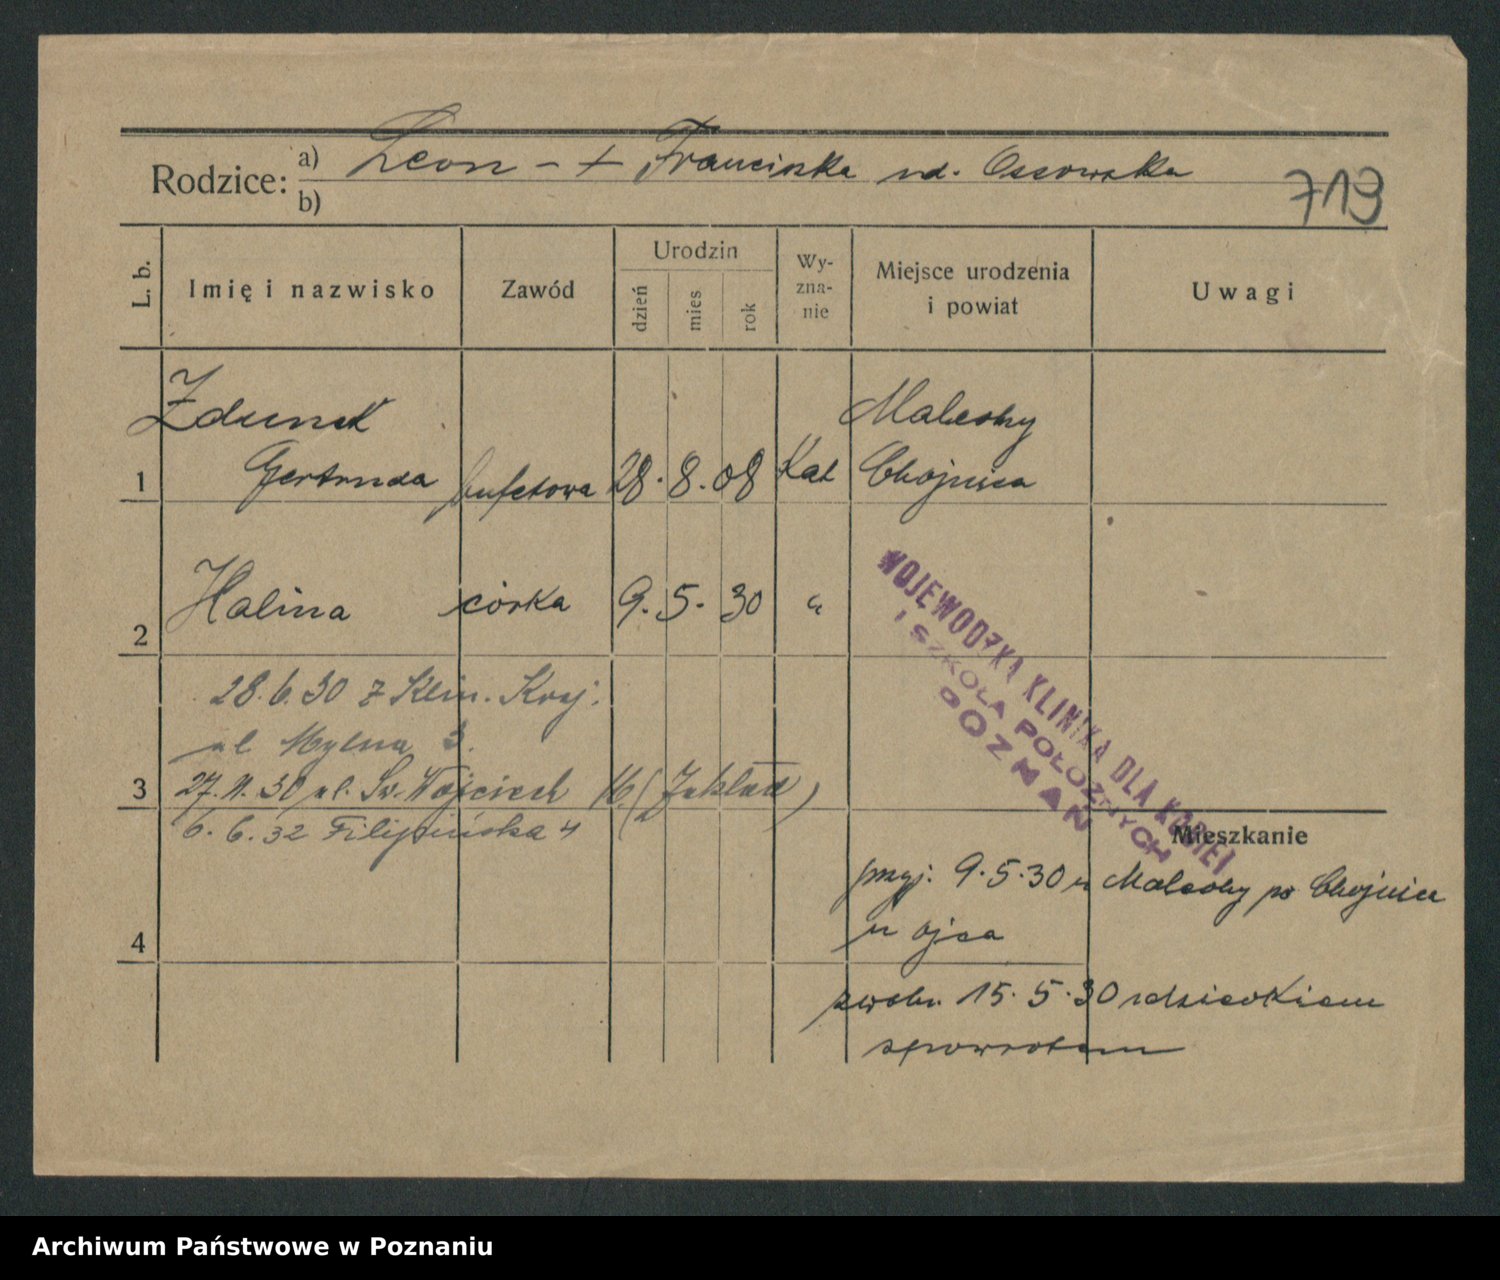 Rodzice: a) Leon - + Franciszka ud. Ossowska
b)
719
L. b.
Imię i nazwisko
Zawód
Urodzin
dzień
mies
rok
Wy-
zna-
nie
Miejsce urodzenia
i powiat
Uwagi
Zdunek
Malachy
1 Gertruda bufetowa 28. 8. 08 Kat Chojnica
2 Halina córka 9. 5. 30 "
WOJEWÓDZKA KLINIKA DLA KOBIET
I SZKOŁA POŁOŻNYCH
POZNAŃ
28.6.30 z Klin. Kraj.
ul Mylna 3.
3 27.11.30 ul. Św. Wojciech 16 (Zakład)
6.6.32 Filipińska 4
Mieszkanie
przyj. 9.5.30 z Malachy po Chojnica
4 u ojca
zwoln. 15.5.30 z dzieckiem
zpowrotem
Archiwum Państwowe w Poznaniu